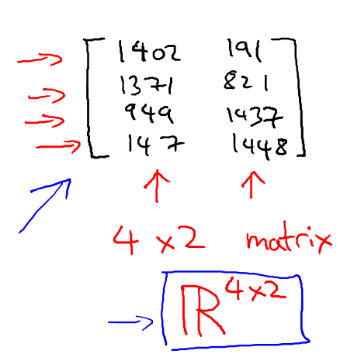 1402 191
1371 821
949 1437
147 1448
4 x 2 matrix
ℝ^{4×2}